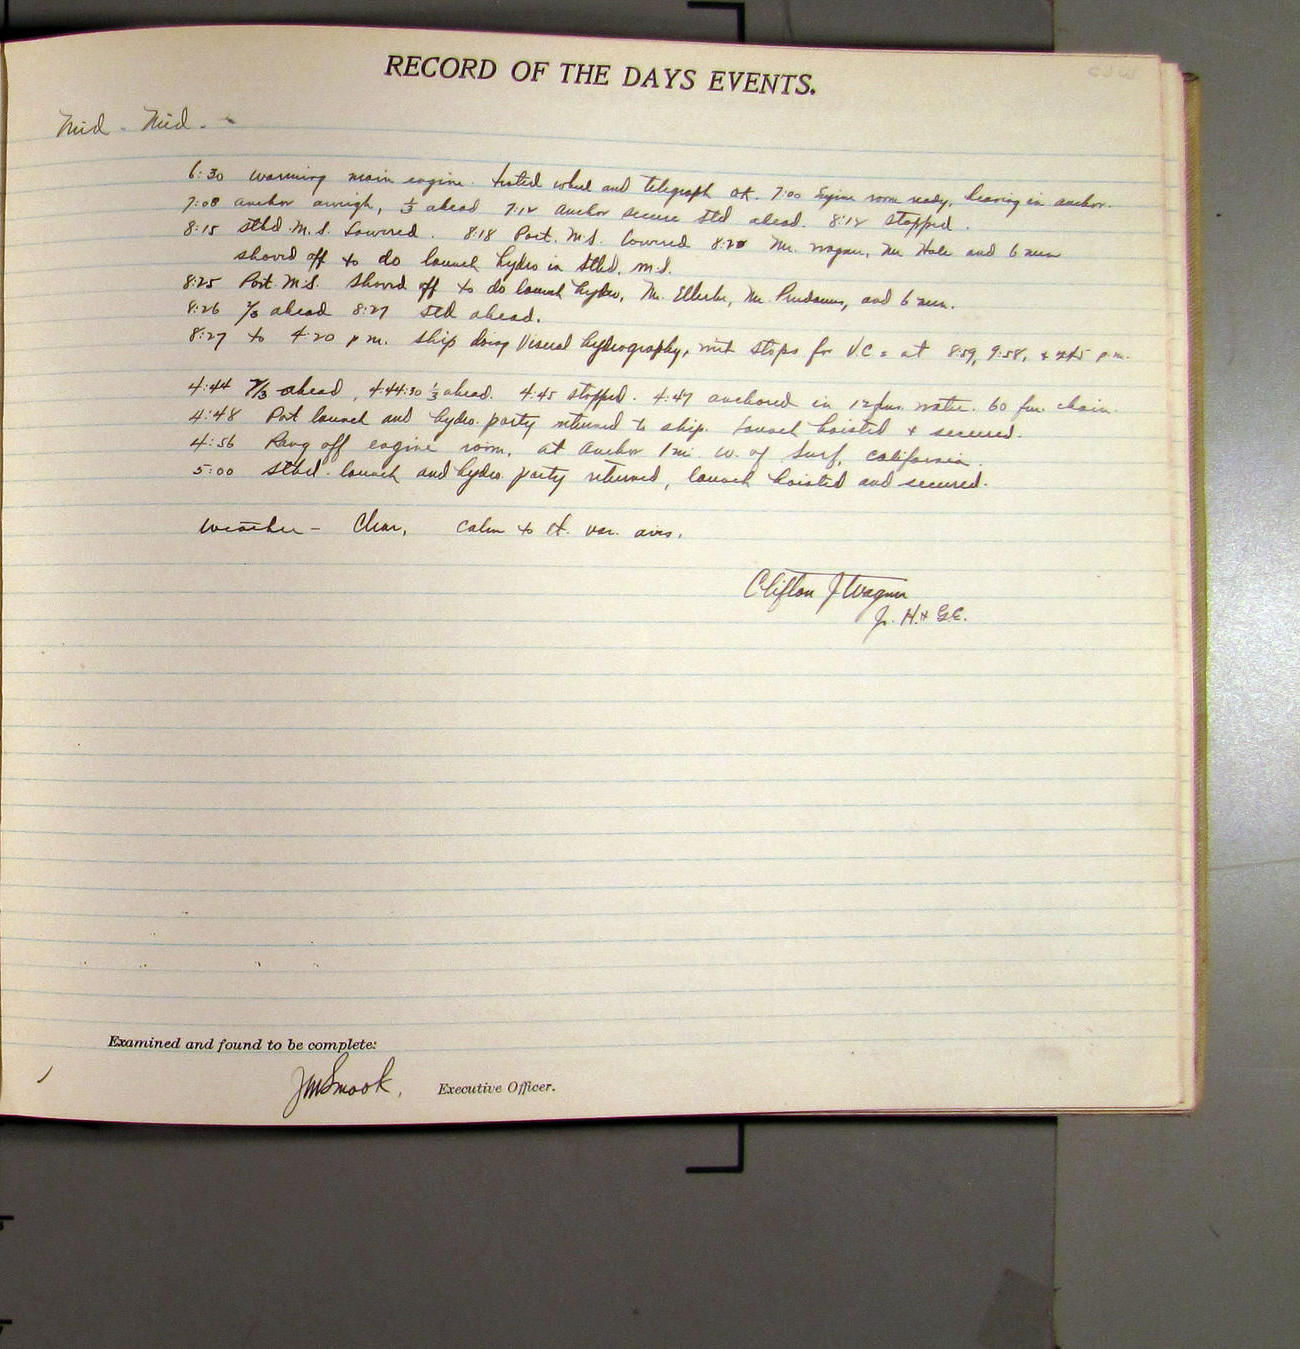 RECORD OF THE DAYS EVENTS.
Mid - Mid. -
6:30 warming main engine. tested wheel and telegraph ok. 7:00 Engine room ready, heaving in anchor.
7:08 anchor aweigh, 1/3 ahead 7:12 anchor secure std ahead. 8:12 stopped.
8:15 stbd. M.S. Lowered. 8:18 Port. M.S. lowered 8:20 Mr. Wagner, Mr Hale and 6 men
shoved off to do launch hydro in stbd. m.s.
8:25 Port M.S. shoved off to do launch hydro, Mr. and 6 men.
8:26 2/3 ahead 8:27 std ahead.
8:27 to 4:20 p.m. ship doing Visual hydrography, with stops for V.C. at 8:59, 9:58, + p.m.
4:44 2/3 ahead, 4:44:30 1/3 ahead. 4:45 stopped. 4:47 anchored in 12 fms. water. 60 fm. chain.
4:48 Port launch and hydro. party returned to ship. Launch hoisted + secured.
4:56 Rang off engine room, at anchor 1 mi. W. of Surf, California.
5:00 stbd. launch and hydro. party returned, launch hoisted and secured.
Weather - Clear, calm to lt. var. airs.
Clifton J Wagner
Jr. H. + G.E.
Examined and found to be complete:
JM Smook, Executive Officer.